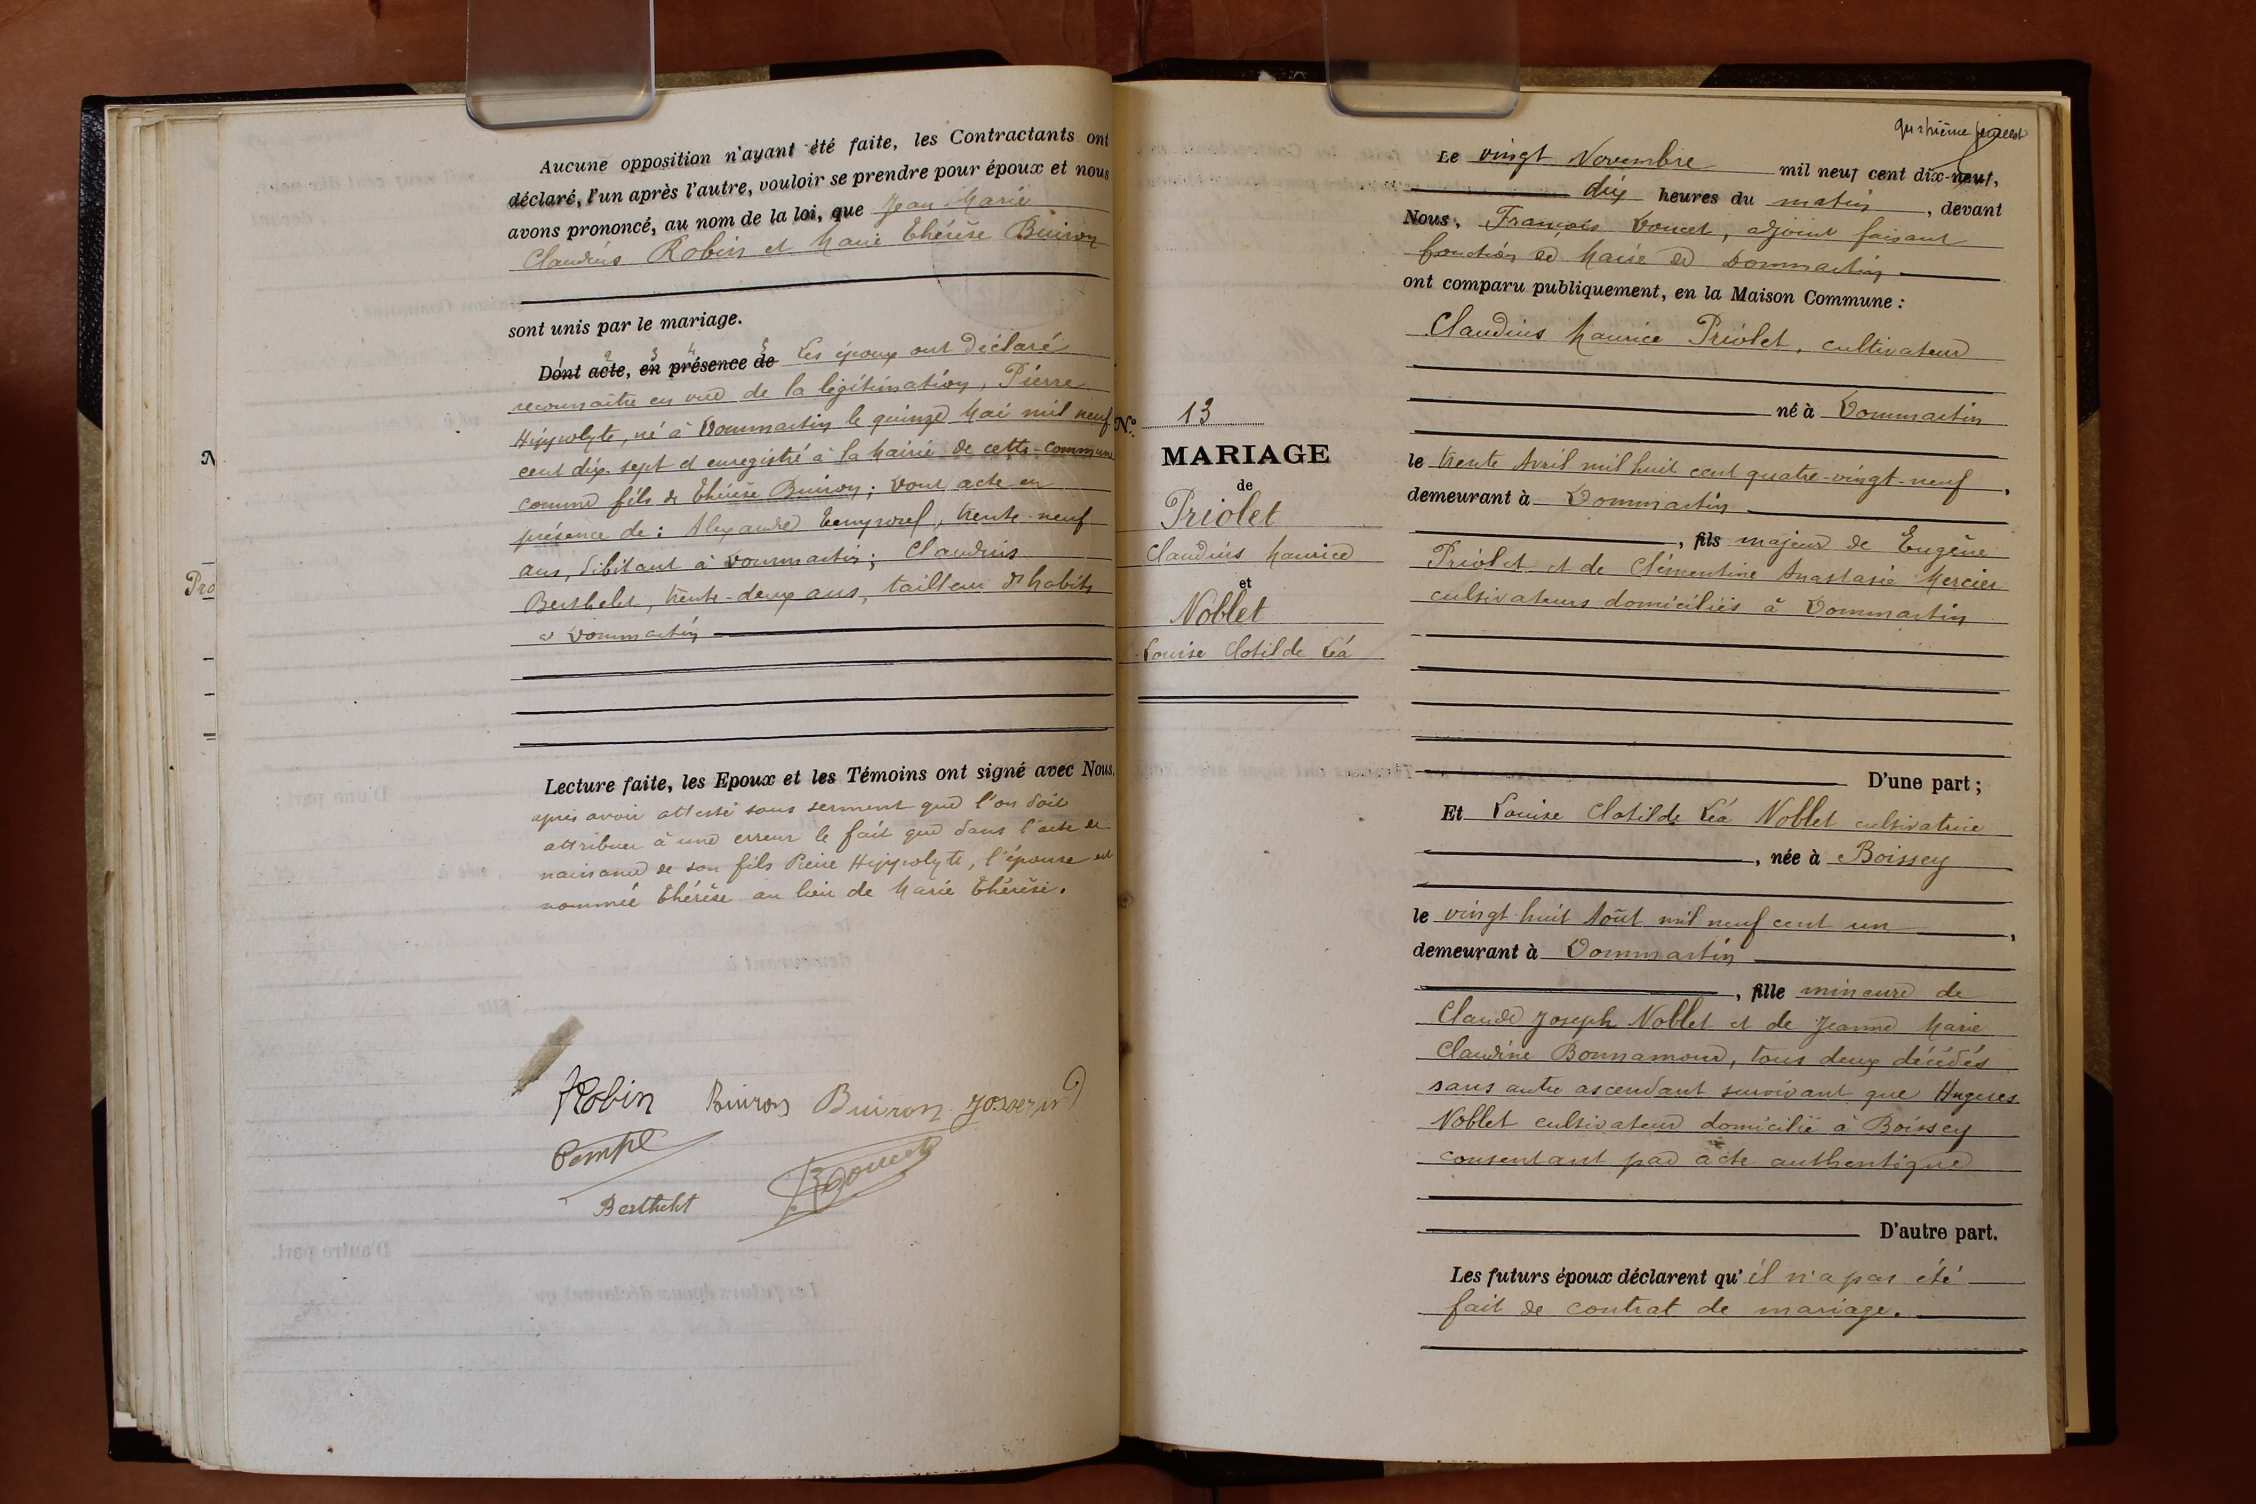 Aucune opposition n'ayant été faite, les Contractants ont
déclaré, l'un après l'autre, vouloir se prendre pour époux et nous
avons prononcé, au nom de la loi, que Jean Marie
Claudius Robin et Marie Thérèse Buiron
sont unis par le mariage.
1 2 3 4 5
Dont acte, en présence de Les époux ont déclaré
reconnaître en vue de la légitimation, Pierre
Hippolyte, né à Dommartin le quinze Mai mil neuf
cent dix-sept et enregistré à la Mairie de cette commune
comme fils de Thérèse Buiron; Dont acte en
présence de: Alexandre, trente-neuf
ans, débitant à Dommartin; Claudius
Berthelet, trente-deux ans, tailleur d'habits
à Dommartin
Lecture faite, les Epoux et les Témoins ont signé avec Nous.
après avoir attesté sous serment que l'on doit
attribuer à une erreur le fait que dans l'acte de
naissance de son fils Pierre Hippolyte, l'épouse est
nommée Thérèse au lieu de Marie Thérèse.
Robin Buiron Buiron
Berthelet
N
Pro
N° 13
MARIAGE
de
Priolet
Claudius Maurice
et
Noblet
Louise Clotilde Léa
feuillet
Le vingt Novembre mil neuf cent dix-neuf,
dix heures du matin, devant
Nous, François Doucet, adjoint faisant
fonction de Maire de Dommartin
ont comparu publiquement, en la Maison Commune :
Claudius Maurice Priolet, cultivateur
né à Dommartin
le trente Avril mil huit cent quatre-vingt-neuf,
demeurant à Dommartin
, fils majeur de Eugène
Priolet et de Clémentine Anastasie Mercier
cultivateurs domiciliés à Dommartin
D'une part ;
Et Louise Clotilde Léa Noblet cultivatrice
, née à Boissey
le vingt huit Août mil neuf cent un,
demeurant à Dommartin
, fille mineure de
Claude Joseph Noblet et de Jeanne Marie
Claudine Bonnamour, tous deux décédés
sans autre ascendant survivant que Hugues
Noblet cultivateur domicilié à Boissey
consentant par acte authentique
D'autre part.
Les futurs époux déclarent qu'il n'a pas été
fait de contrat de mariage.